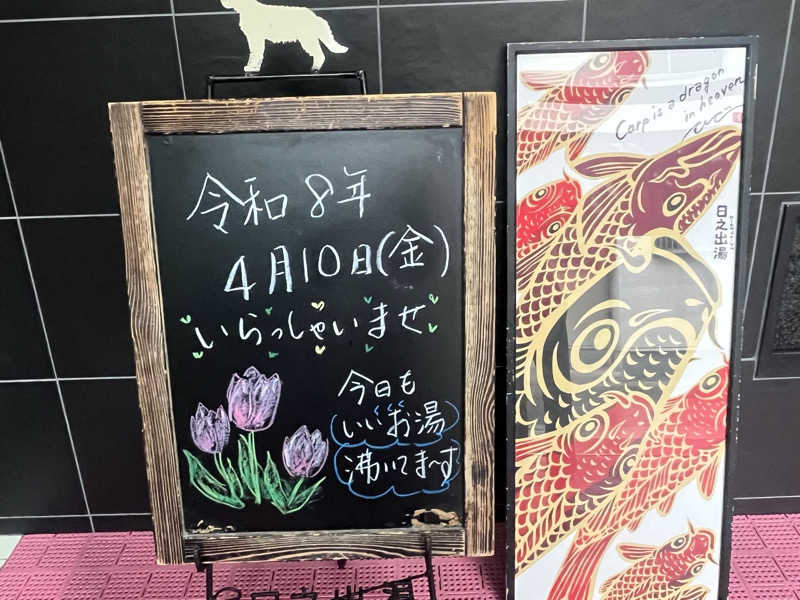 令和8年
4月10日(金)
いらっしゃいませ
今日も
いいお湯
沸いてま〜す
Carp is a dragon
in heaven
日之出湯
日之出湯